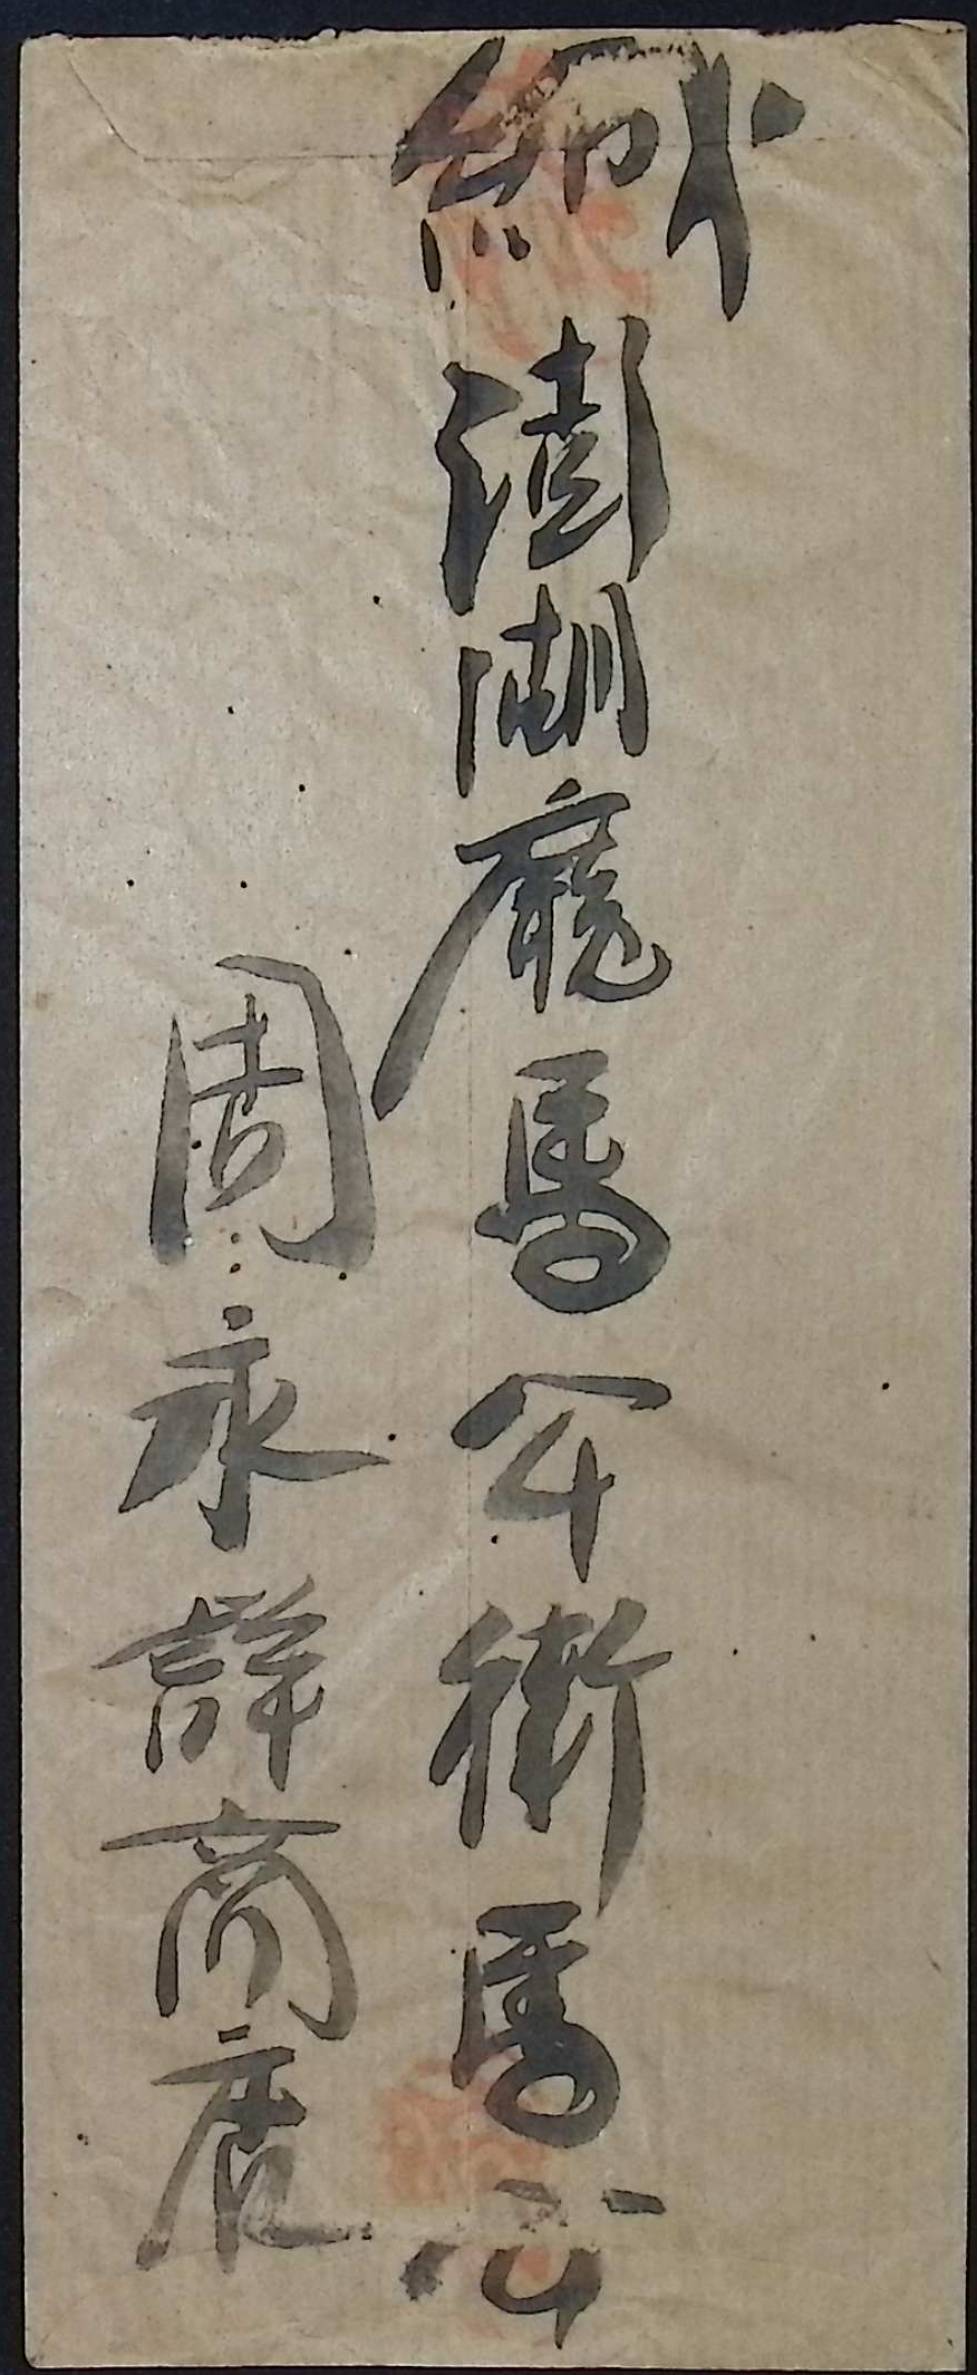 澎湖廳馬公街馬公
周永詳商店